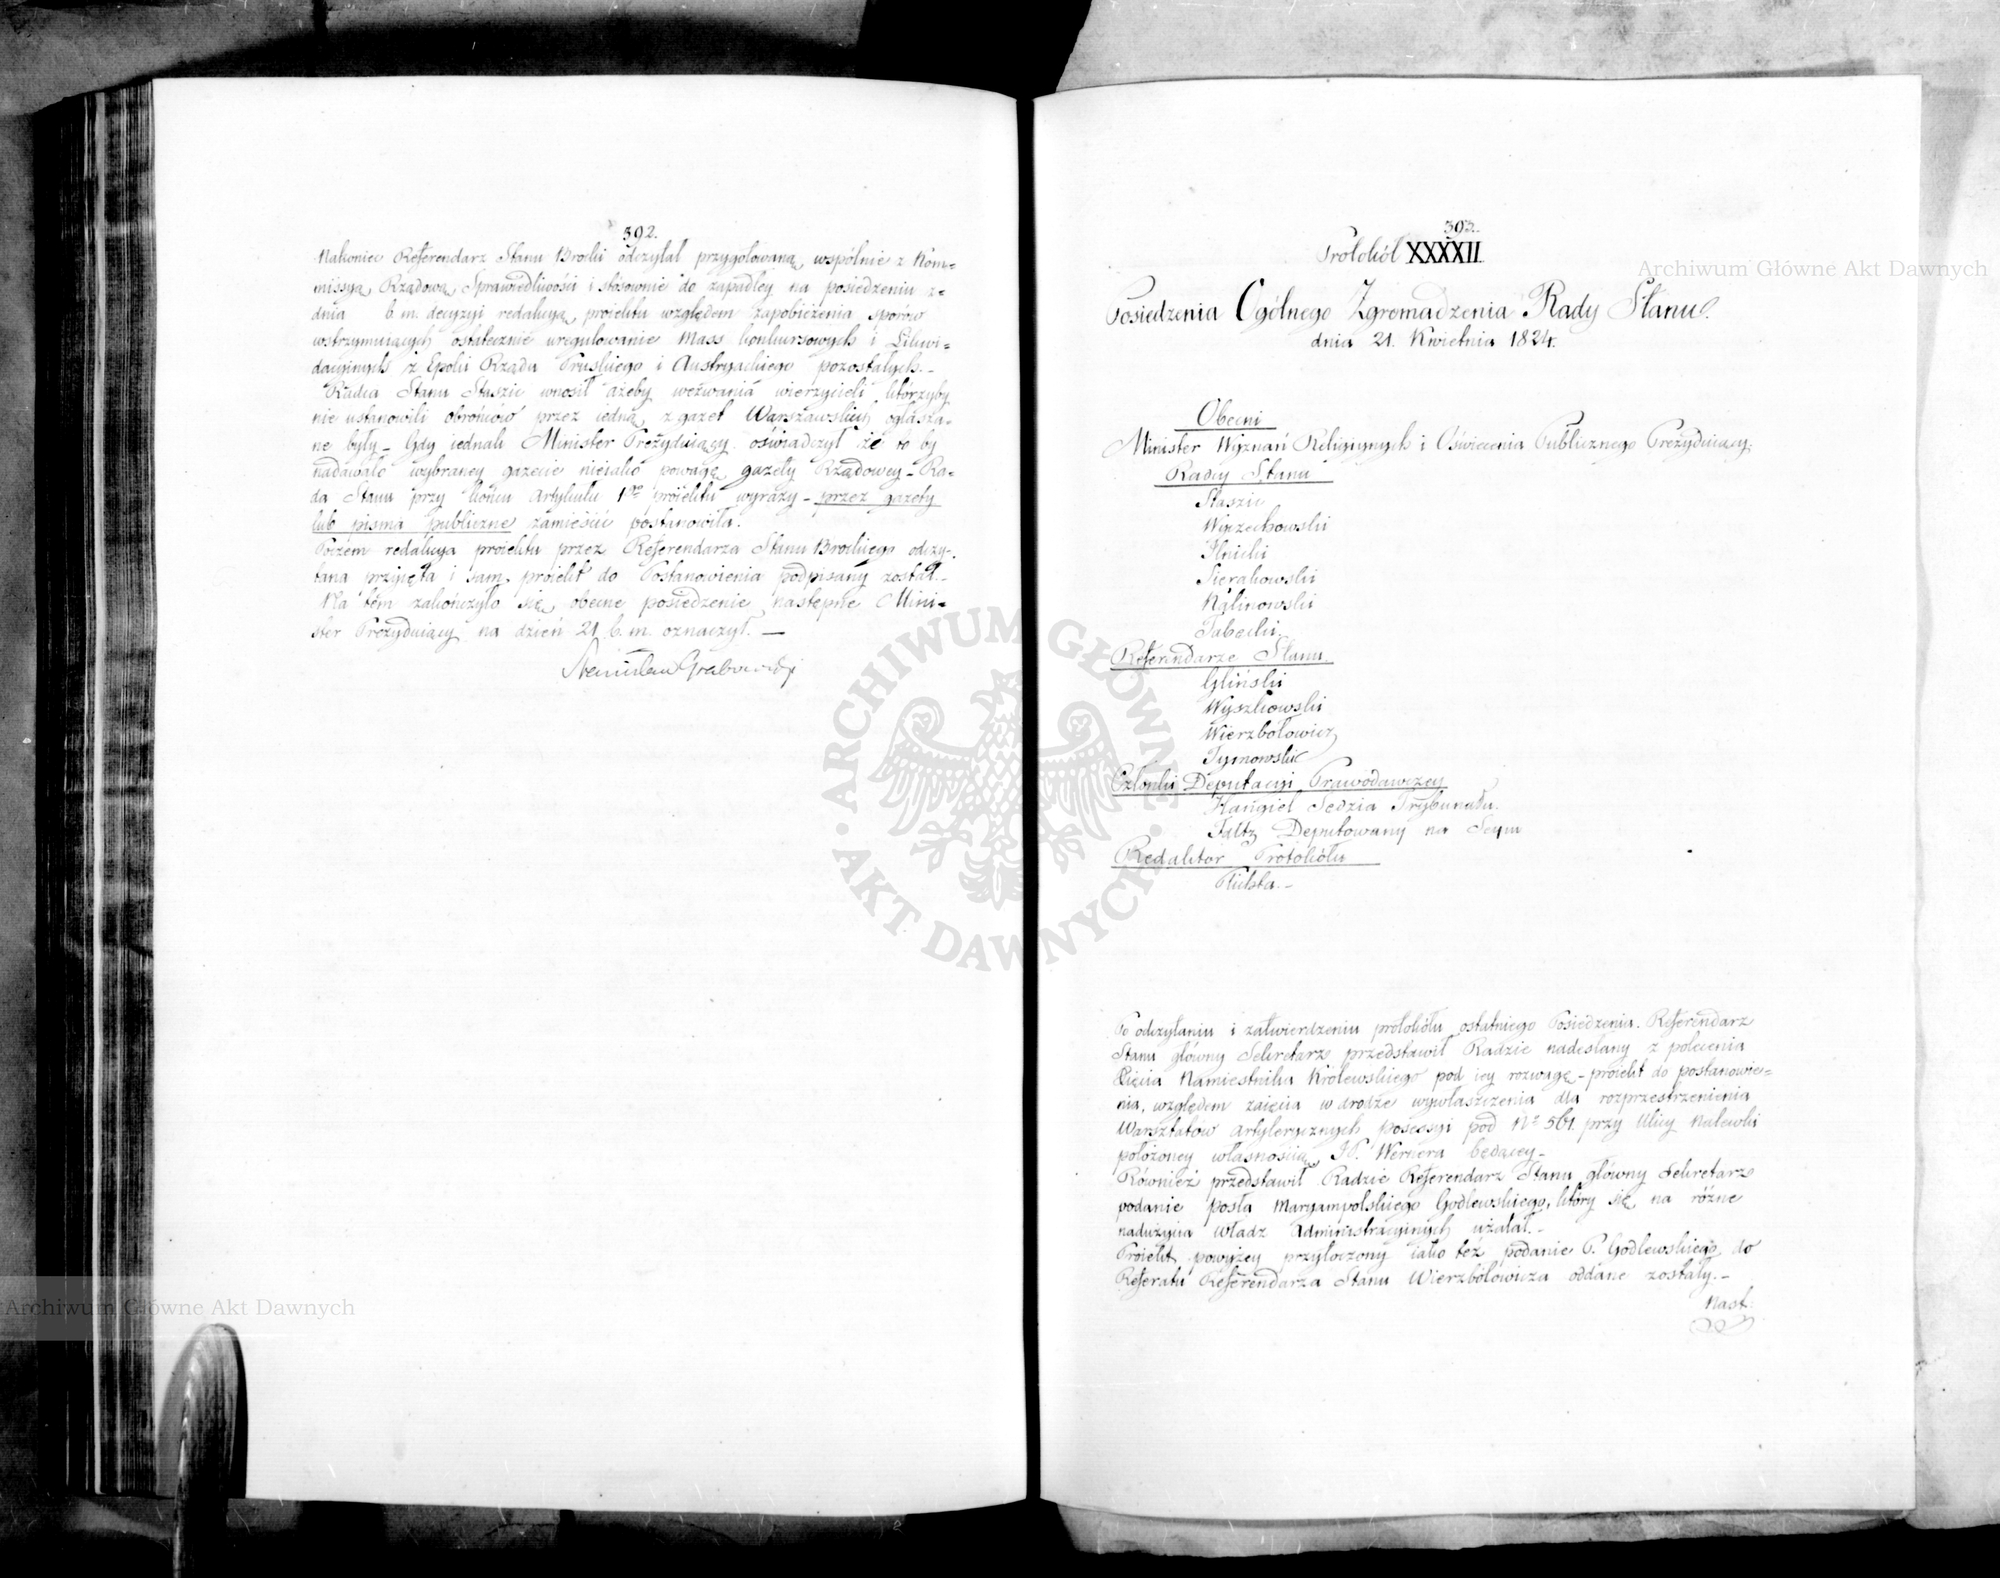 392.
Nakoniec Referendarz Stanu Brocki odczytał przygotowaną, wspólnie z Kom=
missyą Rządową Sprawiedliwości i stosownie do zapadłey na posiedzeniu z=
dnia b. m. decyzyi redakcyą proiektu względem zapobieżenia sporów
wstrzymuiących ostatecznie uregulowanie Mass konkursowych i Likwi-
dacyinych z Epoki Rządu Pruskiego i Austryackiego pozostałych.-
Radca Stanu Staszic wnosił ażeby wezwania wierzycieli którzyby
nie ustanowili obrońców przez iedną z gazet Warszawskich ogłasza-
ne były - Gdy iednak Minister Prezyduiący oświadczył że to by
nadawało wybraney gazecie nieiako powagę gazety Rządowey - Ra-
da Stanu przy końcu Artykułu 1go proiektu wyrazy - przez gazety
lub pisma publiczne zamieścić postanowiła.
Poczem redakcya proiektu przez Referendarza Stanu Brockiego odczy-
tana przyięta i sam proiekt do Postanowienia podpisany został.-
Na tém zakończyło się obecne posiedzenie następne Mini-
ster Prezyduiący na dzień 21 b. m. oznaczył. —
Stanisław Grabowski
393.
Protokół XXXXII.
Posiedzenia Ogólnego Zgromadzenia Rady Stanu.
dnia 21. Kwietnia 1824r.
Obecni
Minister Wyznań Religiynych i Oświecenia Publicznego Prezyduiący.
Radcy Stanu
Staszic
Wyczechowski
Ilnicki
Sierakowski
Kalinowski
Tabecki
Referendarze Stanu
Gliński
Wyszkowski
Wierzbołowicz
Tymowski
Członki Deputacyi Prawodawczey
Hangiel Sędzia Trybunału.
Faltz Deputowany na Seym
Redaktor Protokółu
Plichta.-
Po odczytaniu i zatwierdzeniu protokółu ostatniego Posiedzenia. Referendarz
Stanu główny Sekretarz przedstawił Radzie nadesłany z polecenia
Xięcia Namiestnika Królewskiego pod iey rozwagę - proiekt do postanowie=
nia, względem zaięcia w drodze wywłaszczenia dla rozprzestrzenienia
Warsztatów Artylerycznych possesyi pod No 561. przy Ulicy Nalewki
położoney własnością JP. Wernera będącey -
Również przedstawił Radzie Referendarz Stanu główny Sekretarz
podanie posła Maryampolskiego Godlewskiego, który się na różne
nadużycia władz Administracyinych użalał.-
Proiekt powyżey przytoczony iako też podanie P. Godlewskiego do
Referatu Referendarza Stanu Wierzbołowicza oddane zostały.-
Nast:
Archiwum Główne Akt Dawnych
Archiwum Główne Akt Dawnych
ARCHIWUM GŁÓWNE
AKT DAWNYCH